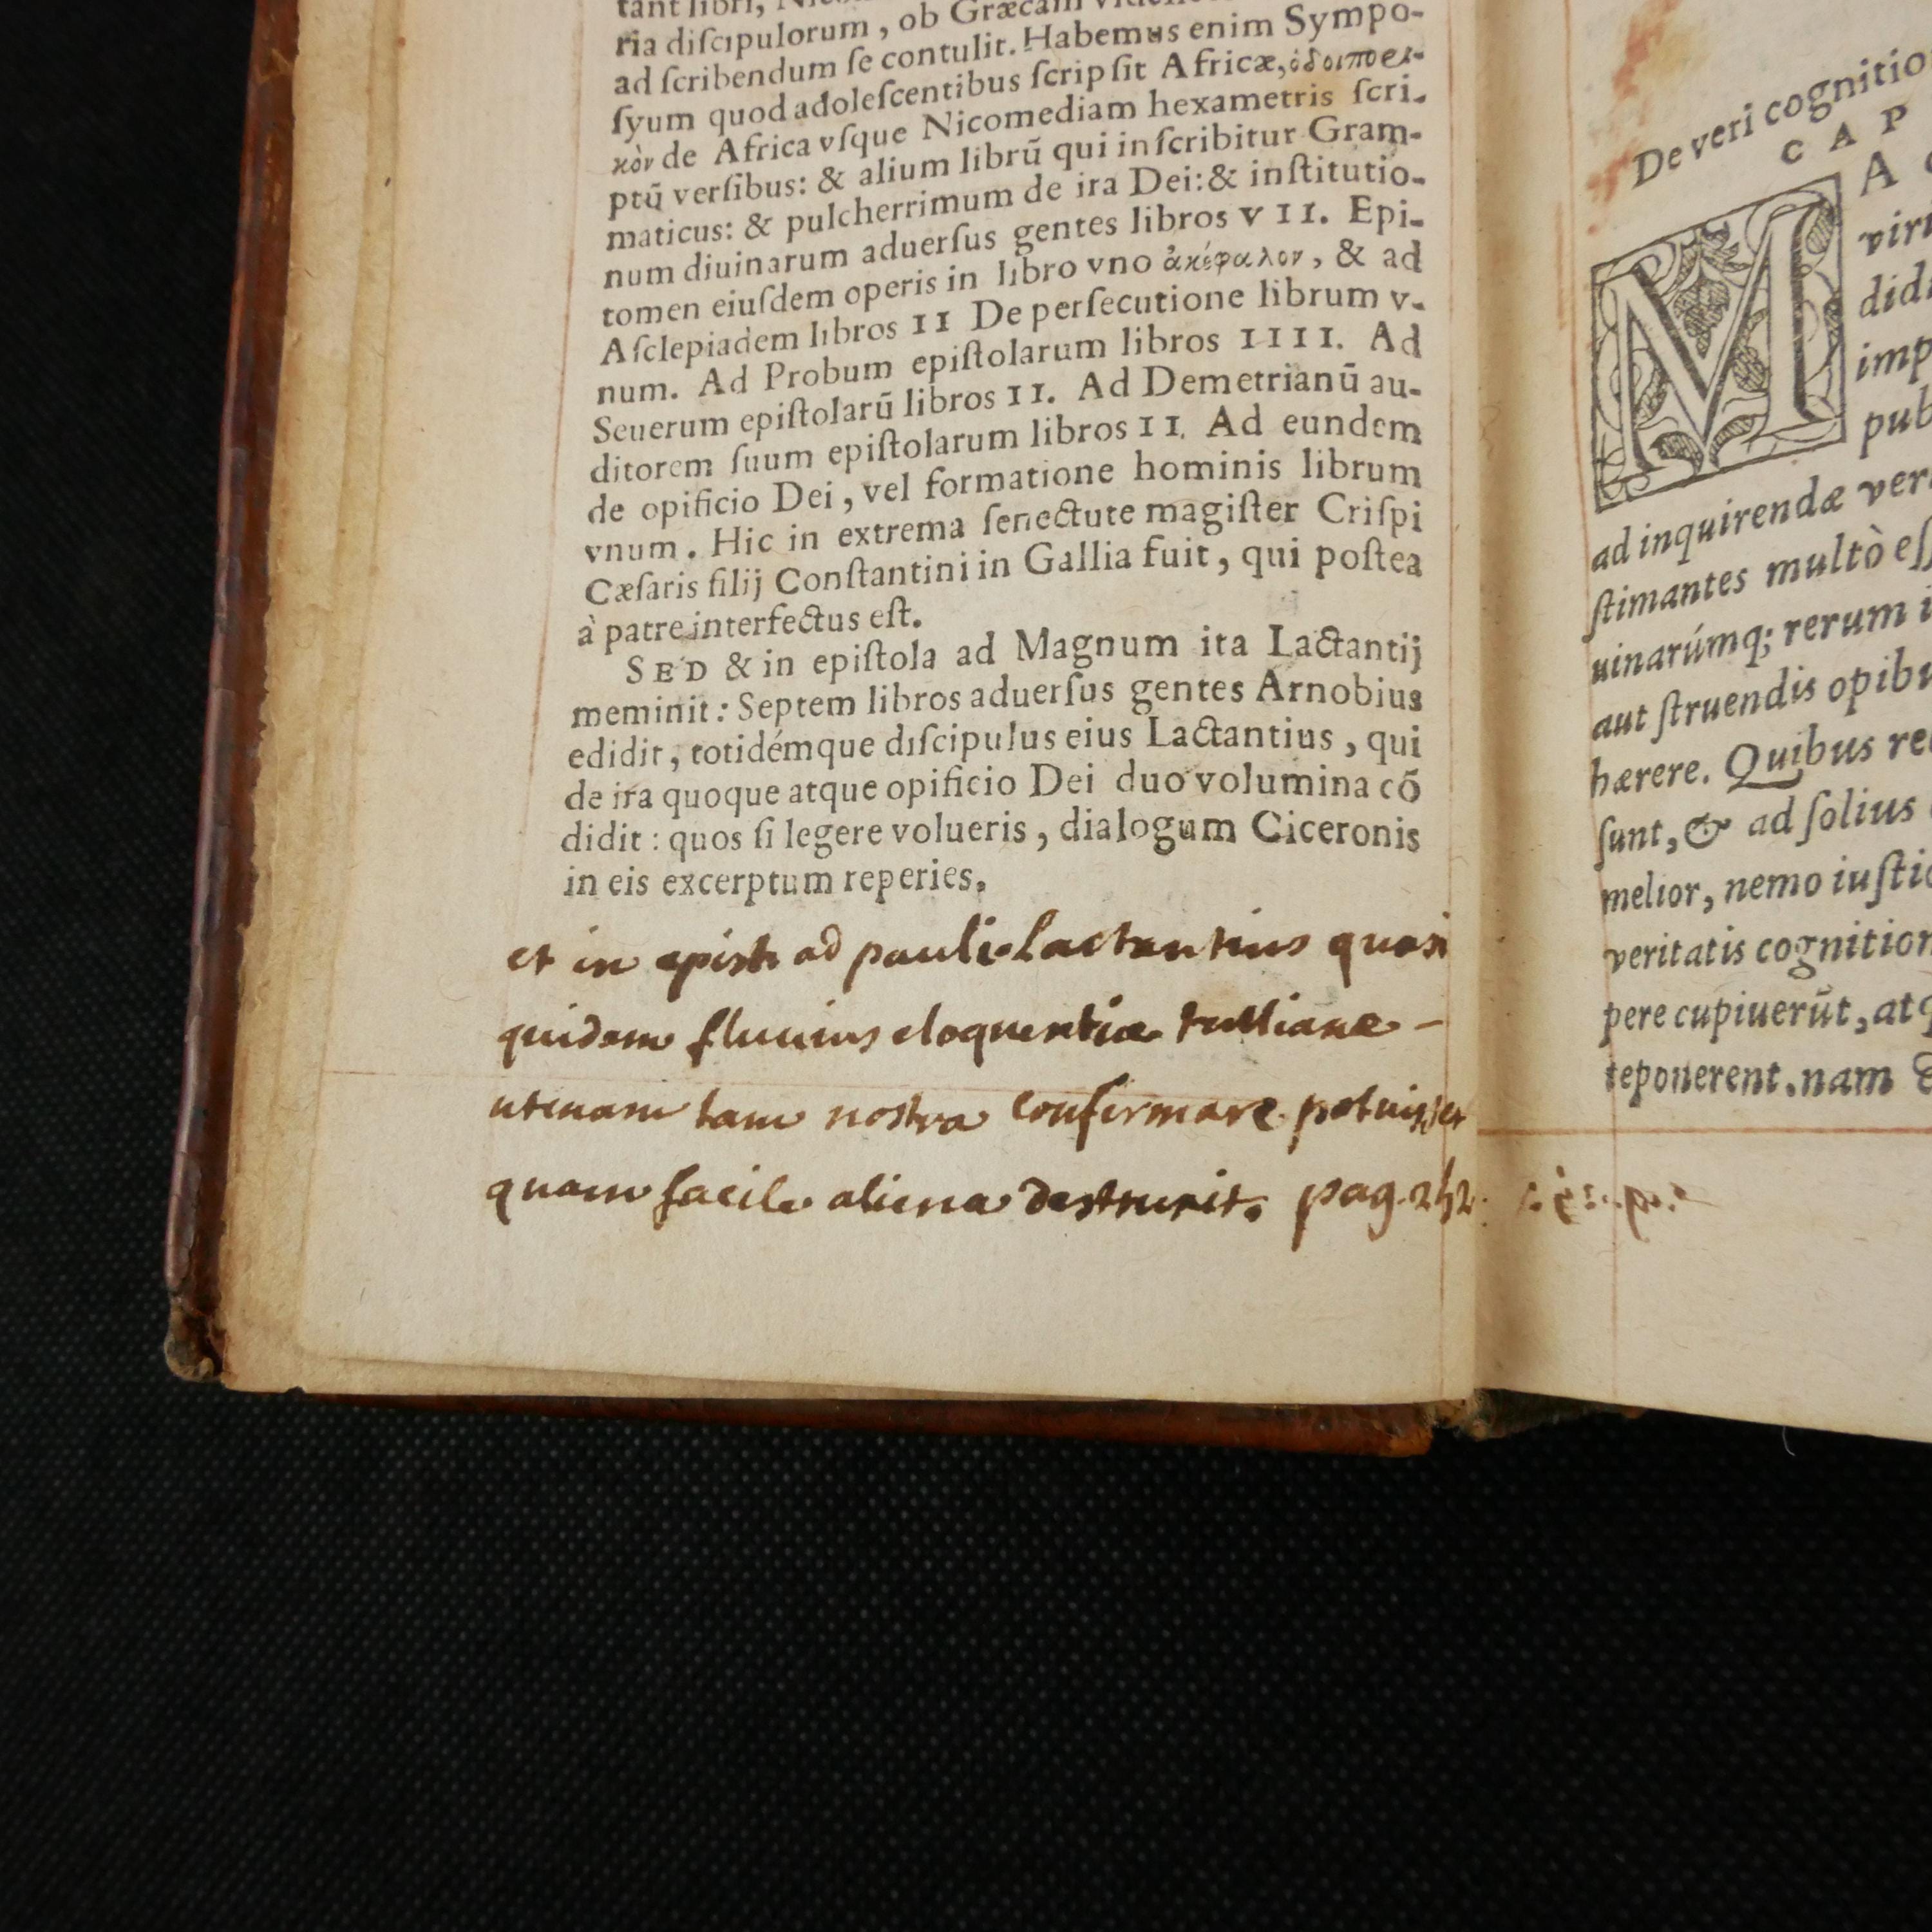 tant libri,
ria diſcipulorum, ob Græcam
ad ſcribendum ſe contulit. Habemus enim Sympo-
ſyum quod adoleſcentibus ſcripſit Africæ, ὁδοιπορι-
κὸν de Africa vſque Nicomediam hexametris ſcri-
ptū verſibus: & alium librū qui inſcribitur Gram-
maticus: & pulcherrimum de ira Dei: & inſtitutio-
num diuinarum aduerſus gentes libros VII. Epi-
tomen eiuſdem operis in libro vno ἀκέφαλον, & ad
Aſclepiadem libros II De perſecutione librum v-
num. Ad Probum epiſtolarum libros IIII. Ad
Seuerum epiſtolarū libros II. Ad Demetrianū au-
ditorem ſuum epiſtolarum libros II. Ad eundem
de opificio Dei, vel formatione hominis librum
vnum. Hic in extrema ſenectute magiſter Criſpi
Cæſaris filij Conſtantini in Gallia fuit, qui poſtea
à patre interfectus eſt.
SED & in epiſtola ad Magnum ita Lactantij
meminit: Septem libros aduerſus gentes Arnobius
edidit, totidémque diſcipulus eius Lactantius, qui
de ira quoque atque opificio Dei duo volumina cō
didit: quos ſi legere volueris, dialogum Ciceronis
in eis excerptum reperies.
et in epist ad pauli. Lactantius quasi
quidam fluuius eloquentiæ tullianæ -
utinam tam nostra confirmare potuisset
quam facile aliena destruxit. pag. 242.
De veri cognitio
CAP
M A
viri
didi
imp
pub
ad inquirendæ veri
ſtimantes multò eſſ
uinarúmq; rerum i
aut ſtruendis opibu
hærere. Quibus re
ſunt, & ad ſolius
melior, nemo iuſtio
veritatis cognition
pere cupiuerūt, atq
teponerent. nam